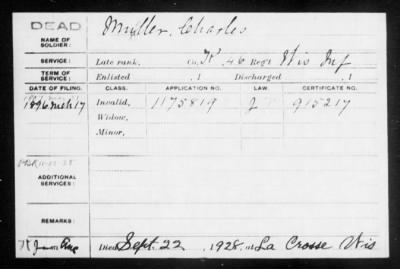 DEAD
NAME OF SOLDIER: Muller, Charles
SERVICE: Late rank, Co. 46 Reg't Wis Inf
TERM OF SERVICE: Enlisted , 1 Discharged , 1
DATE OF FILING. CLASS. APPLICATION NO. LAW. CERTIFICATE NO.
1896 Mch 17 Invalid, 1175819 J 915217
Widow,
Minor,
ADDITIONAL SERVICES:
REMARKS:
Died Sept. 22, 1928, at La Crosse Wis